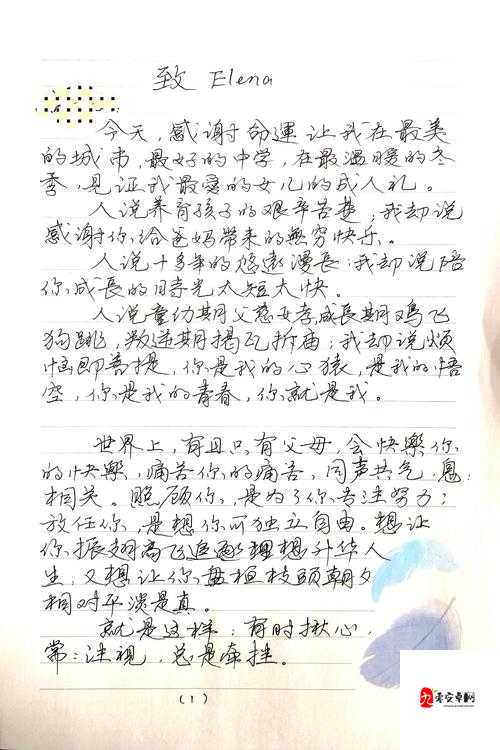 致 Elena
今天,感谢命運让我在最美
的城市,最好的中学,在最溫暖的冬
季,见证我最爱的女儿的成人礼。
人说养育孩子的艰辛苦楚,我却说
感谢你给爸妈带来的無穷快乐。
人说十多年的悠遠漫長;我却说陪
你成長的時光太短太快。
人说童幼期父慈女孝,成長期鸡飞
狗跳,叛逆期揭瓦拆庙;我却说烦
恼即菩提,你是我的心猿,是我的悟
空,你是我的青春,你就是我。
世界上,有且只有父母,会快樂你
的快樂,痛苦你的痛苦,同声共气,息息
相关。照顾你,是为了你专注努力;
放任你,是想你可独立自由。想让
你振翅高飞追逐理想升华人
生,又想让你盘桓枝頭朝夕
相对平淡是真。
就是这样:有时揪心,
常注视,总是牵挂。
(1)
零安卓网